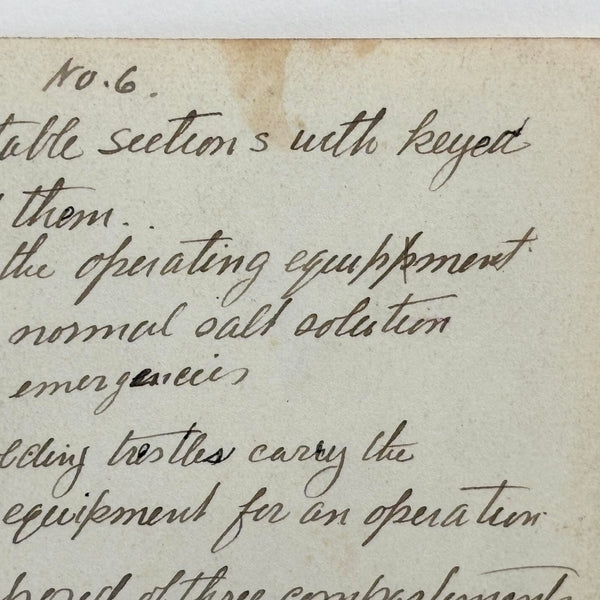 No. 6.
table sections with keyed
them.
the operating equippment
normal salt solution
emergencies
lding trestles carry the
equipment for an operation
posed of three compartments